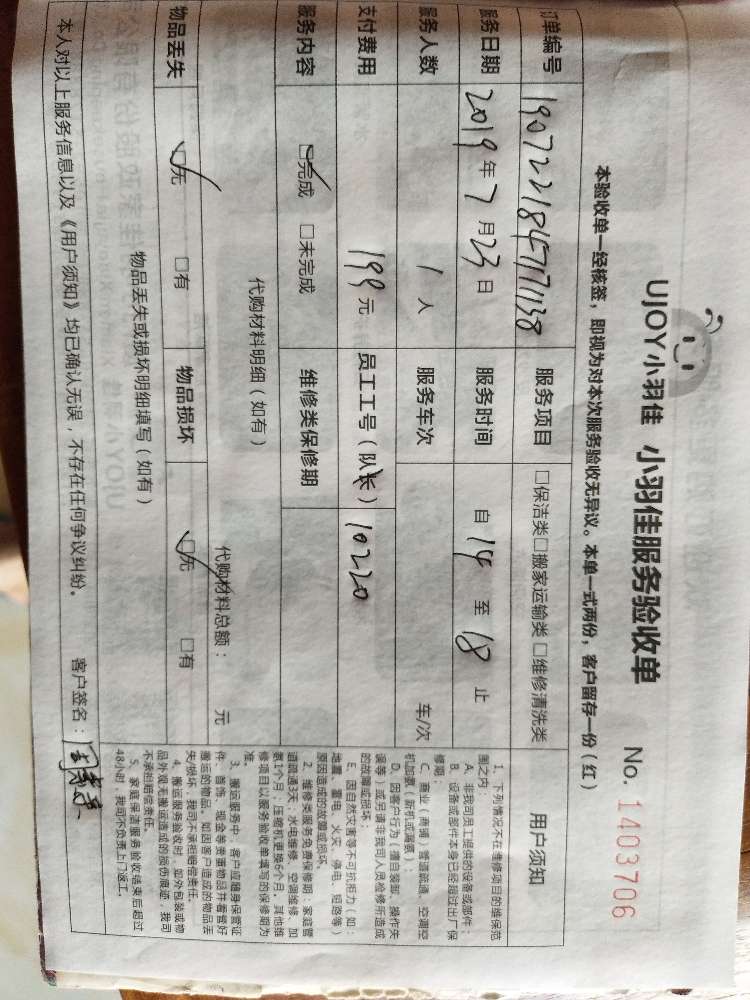 UJOY小羽佳 小羽佳服务验收单
No. 1403706
本验收单一经核签，即视为对本次服务验收无异议。本单一式两份，客户留存一份（红）
订单编号
服务项目 □保洁类□搬家运输类□维修清洗类
服务日期 2019年7月23日 服务时间 自14至18止
服务人数 1人 服务车次 车/次
支付费用 199元 员工工号（队长） 10220
服务内容 □完成 □未完成 维修类保修期
代购材料明细（如有）
代购材料总额： 元
物品丢失 □无 □有 物品损坏 □无 □有
物品丢失或损坏明细填写（如有）
本人对以上服务信息以及《用户须知》均已确认无误，不存在任何争议纠纷。 客户签名：
用户须知
1、下列情况不在维修项目的维保范
围之内：
A、非我司员工提供的设备或部件；
B、设备或部件本身已经超过出厂保
修期；
C、商业（商铺）管道疏通、空调空
机加氟（新机或漏氟）；
D、因客户行为（擅自装卸、操作失
误等）或另请非我司人员检修所造成
的故障或损坏；
E、因自然灾害等不可抗拒力（如：
地震、雷电、火灾、停电、短路等）
原因造成的故障或损坏。
2、维修类服务免费保修期：家庭管
道疏通3天，水电维修、空调维修、加
氨1个月，压缩机更换6个月，其他维
修项目以服务验收单填写的保修期为
准。
3、搬运服务中，客户应随身保管证
件、首饰、现金等贵重物品并看管好
搬运的物品。如因客户造成的物品丢
失/损坏，我司不承担赔偿责任。
4、搬运服务验收时，如外包装或物
品外观无搬运造成的损伤痕迹，我司
不承担赔偿责任。
5、家庭保洁服务验收结束后超过
48小时，我司不负责上门返工。